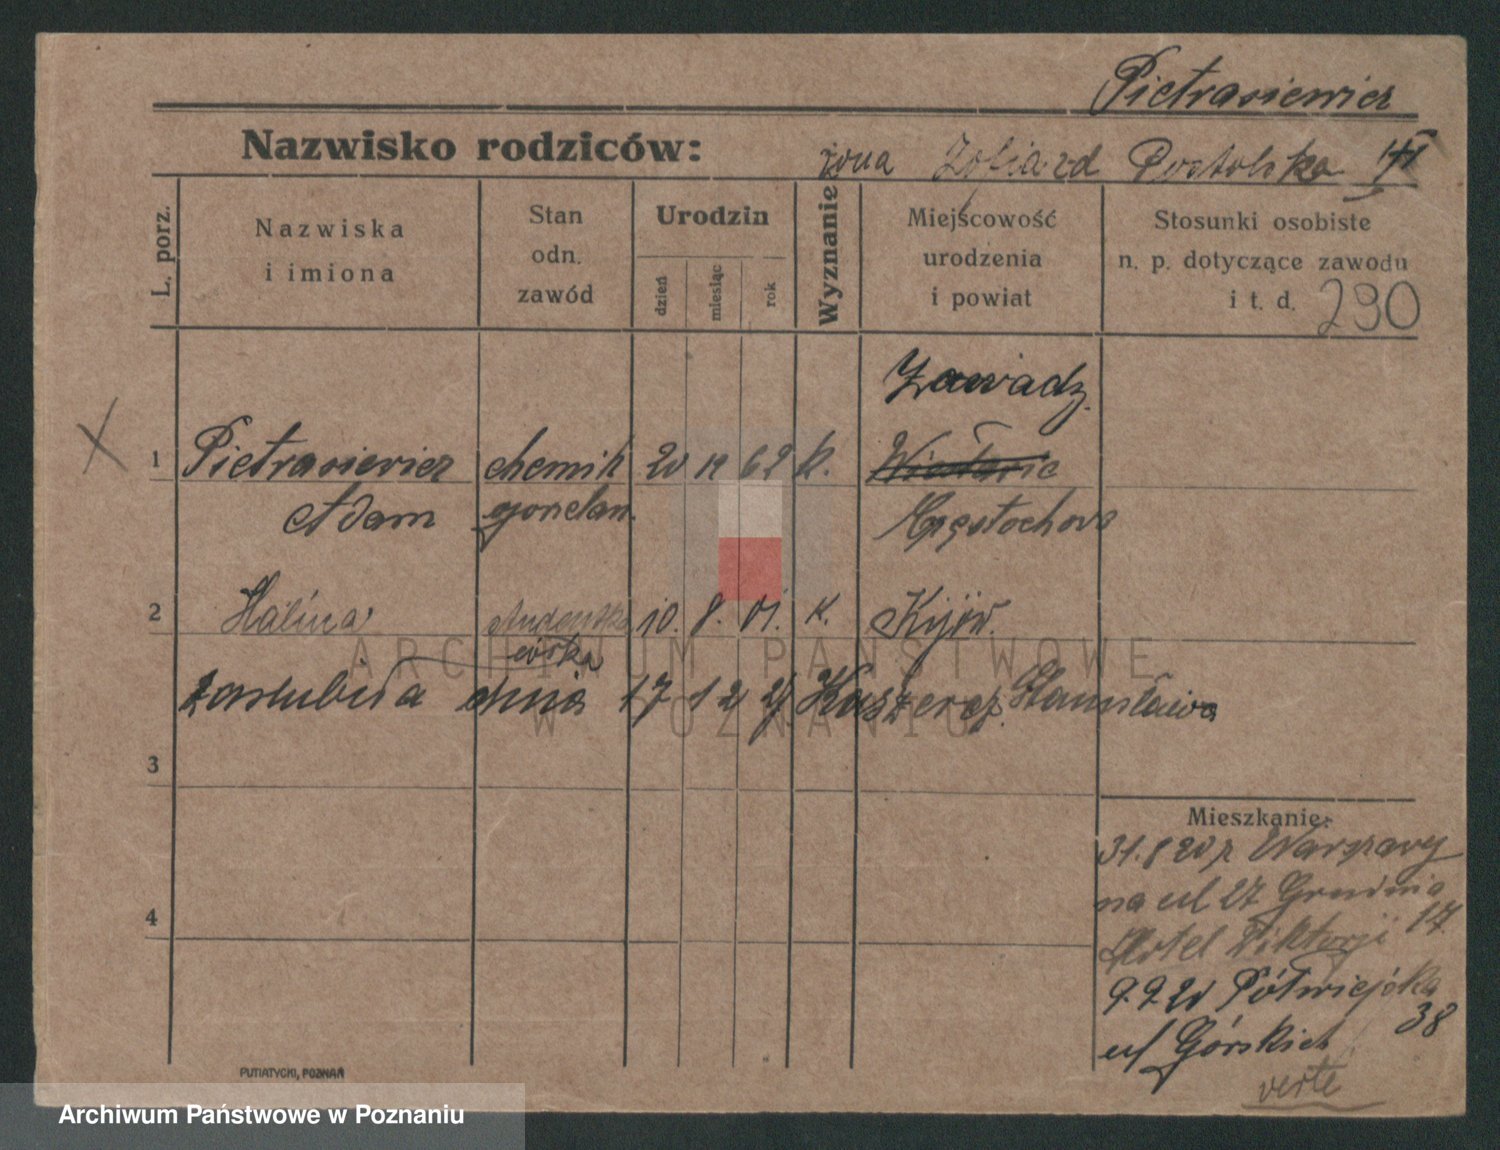 Pietrasiewicz
Nazwisko rodziców:
żona Zofia zd Postolska
L. porz.
Nazwiska
i imiona
Stan
odn.
zawód
Urodzin
dzień
miesiąc
rok
Wyznanie
Miejscowość
urodzenia
i powiat
Stosunki osobiste
n. p. dotyczące zawodu
i t. d. 290
Zawadz.
1 Pietrasiewicz chemik 20 12 62 k.
Adam gorzelan. Częstochowa
2 Halina studentka 10. 8. 01. k. Kijów.
córka
zaślubiła dnia 17 12 21 Kaszercz. Stanisława
3
4
Mieszkanie:
31.8 20 z Warszawy
na ul 27 Grudnia
Hotel Viktorji 17
9.9.20 Półwiejska
38
ul Górskich
verte
PUTIATYCKI, POZNAŃ
ARCHIWUM PAŃSTWOWE
W POZNANIU
Archiwum Państwowe w Poznaniu